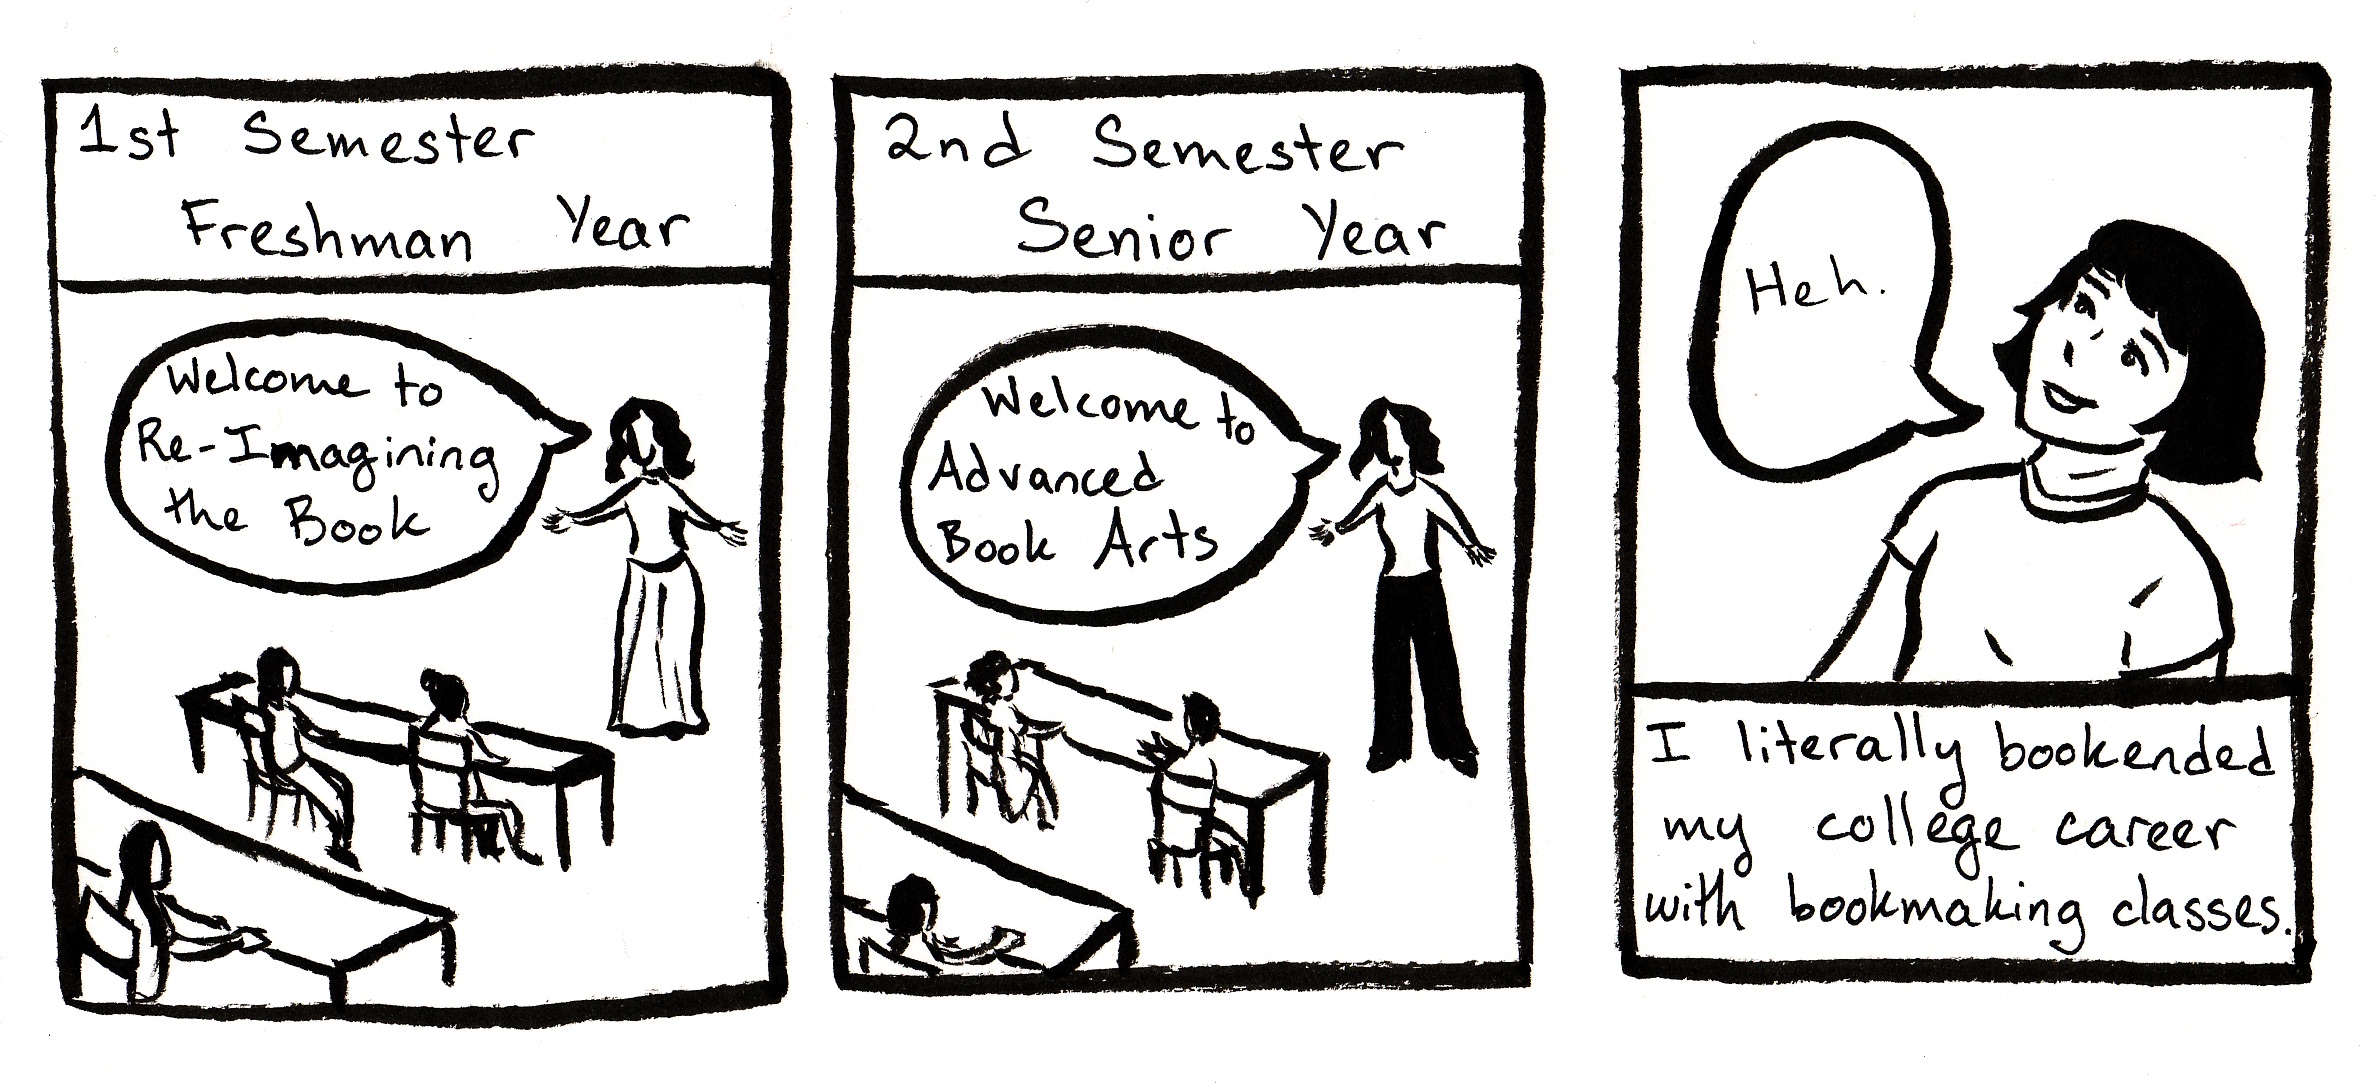 1st Semester
Freshman Year
Welcome to
Re-Imagining
the Book
2nd Semester
Senior Year
Welcome to
Advanced
Book Arts
Heh.
I literally bookended
my college career
with bookmaking classes.